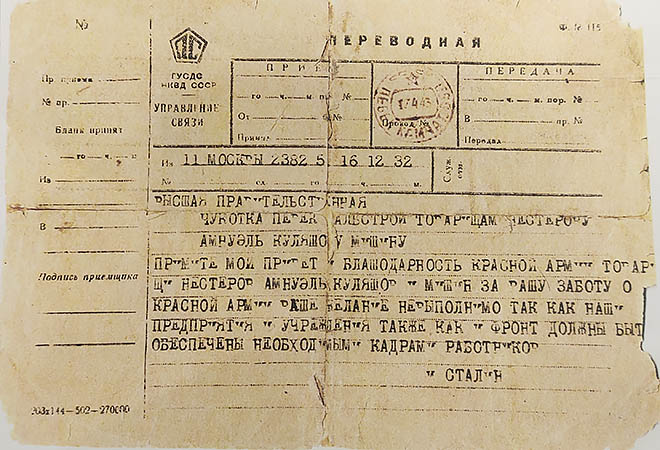 №
Ф. № 115
ПЕРЕВОДНАЯ
ДС
ГУСДС
НКВД СССР
УПРАВЛЕНИЕ
СВЯЗИ
Пр. приема
№ пр.
Бланк принят
го ч. м.
Из
В
Подпись приемщика
ПРИЕМ
го ч. м. пр. №
От №
Приня
17.4.43
Провод №
ПЕРЕДАЧА
го ч. м. пор. №
В пр. №
Передал
Из 11 МОСКВЫ 2382 5 16 12 32
№ сл. го ч. м.
Служ. отм.
ВЫСШАЯ ПРАВИТЕЛЬСТВЕННАЯ
ЧУКОТКА ПЕВЕК ДАЛЬСТРОЙ ТОВАРИЩАМ НЕСТЕРОВУ
АМНУЭЛЬ КУЛЯШОВУ МИШИНУ
ПРИМИТЕ МОЙ ПРИВЕТ И БЛАГОДАРНОСТЬ КРАСНОЙ АРМИИ ТОВАР
ЩИ НЕСТЕРОВ АМНУЭЛЬ КУЛЯШОВ И МИШИН ЗА ВАШУ ЗАБОТУ О
КРАСНОЙ АРМИИ ВАШЕ ЖЕЛАНИЕ НЕВЫПОЛНИМО ТАК КАК НАШИ
ПРЕДПРИЯТИЯ И УЧРЕЖДЕНИЯ ТАКЖЕ КАК И ФРОНТ ДОЛЖНЫ БЫТ
ОБЕСПЕЧЕНЫ НЕОБХОДИМЫМИ КАДРАМИ РАБОТНИКОВ
И СТАЛИН
203х144—502—270000